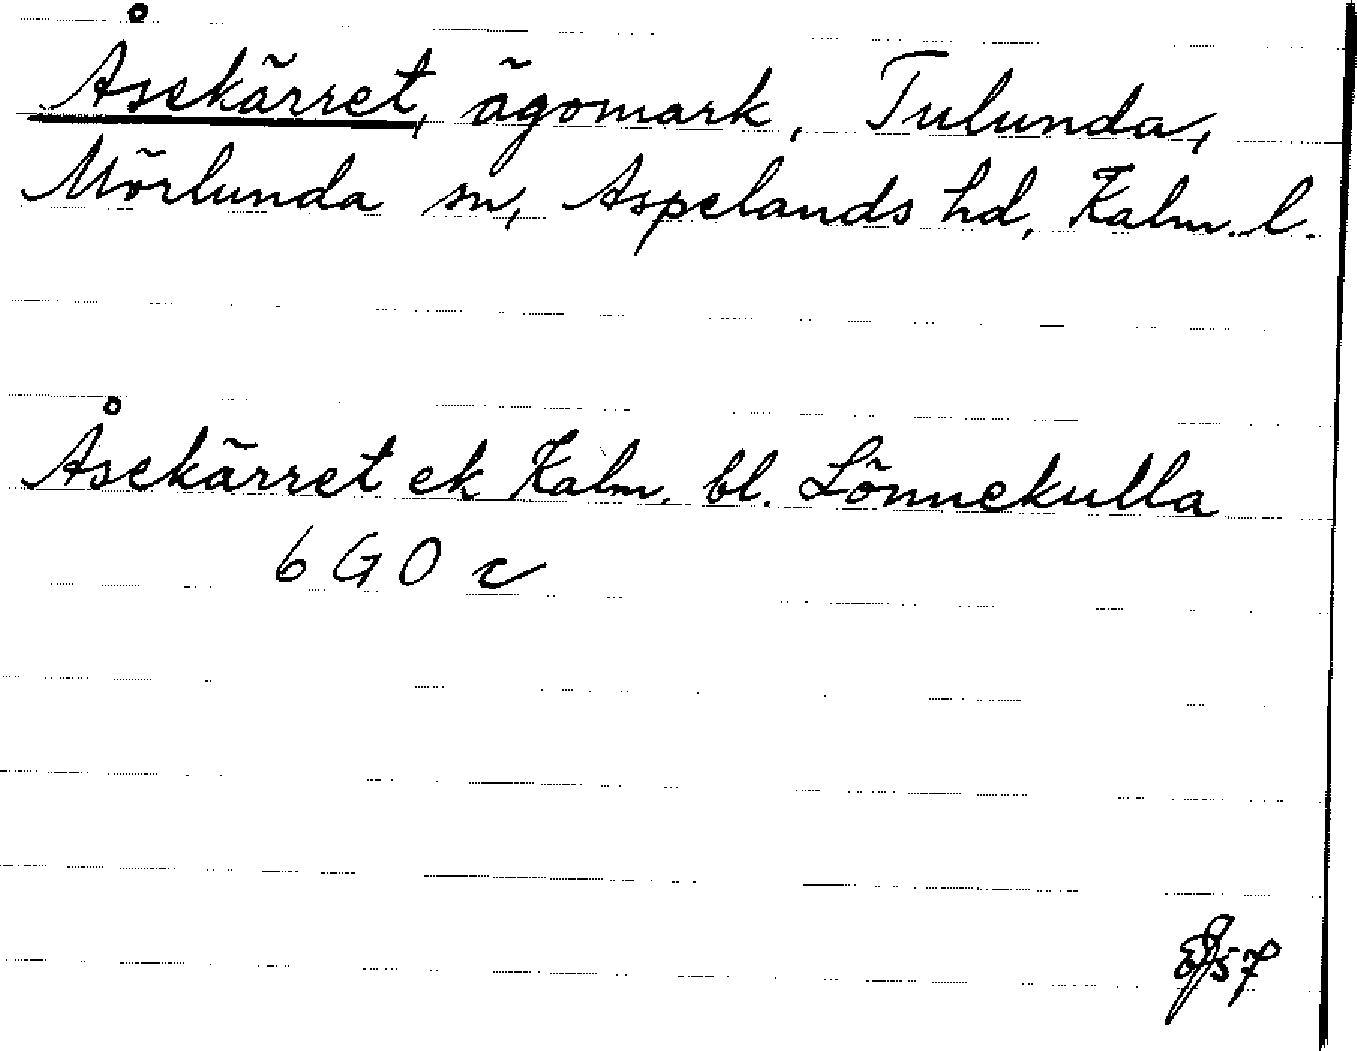 Åsekärret, ägomark, Tulunda,
Mörlunda sn, Aspelands hd, Kalm. l.
Åsekärret ek Kalm. bl. Lönnekulla
6 G O c
57